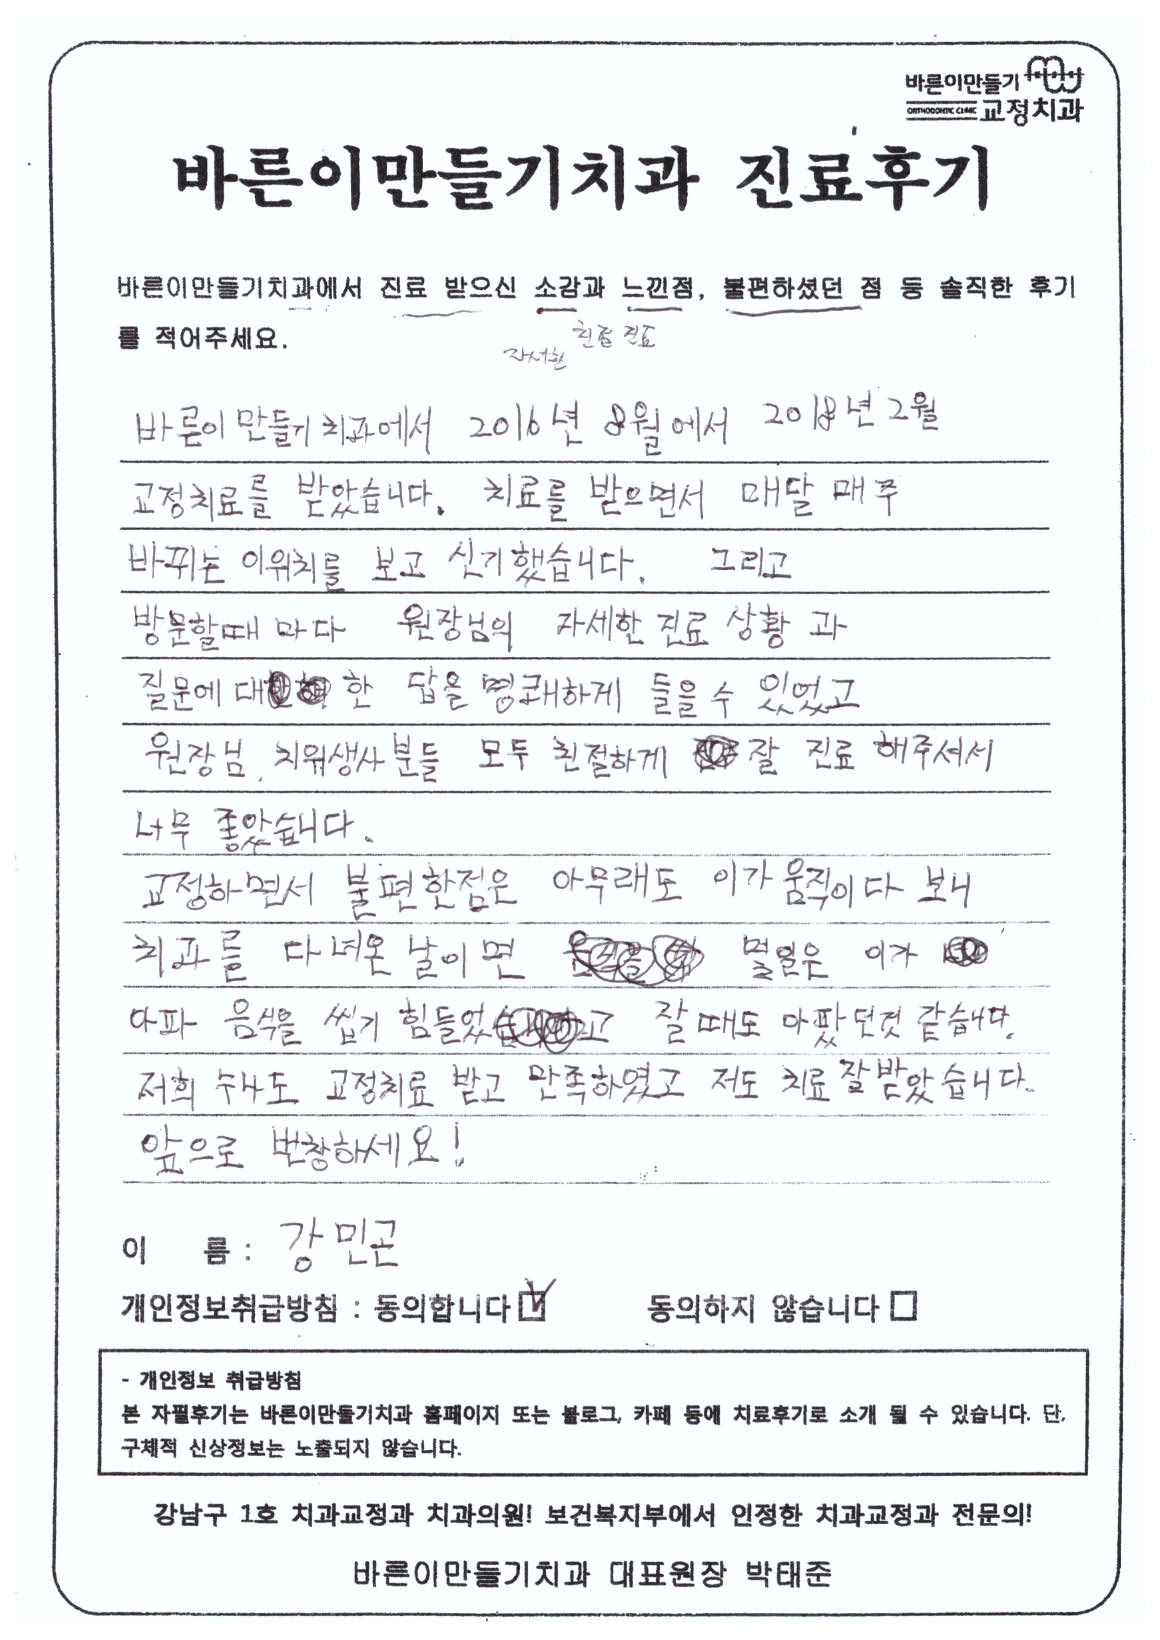 바른이만들기
ORTHODONTIC CLINIC 교정치과
바른이만들기치과 진료후기
바른이만들기치과에서 진료 받으신 소감과 느낀점, 불편하셨던 점 등 솔직한 후기
를 적어주세요.
친절 진료
자세한
바른이 만들기 치과에서 2016년 8월에서 2018년 2월
교정치료를 받았습니다. 치료를 받으면서 매달 매주
바뀌는 이위치를 보고 신기했습니다. 그리고
방문할때 마다 원장님의 자세한 진료 상황 과
질문에 대 한 답을 명쾌하게 들을 수 있었고
원장님, 치위생사분들 모두 친절하게 잘 진료 해주셔서
너무 좋았습니다.
교정하면서 불편한점은 아무래도 이가 움직이다 보니
치과를 다녀온 날이면 몇일은 이가
아파 음식을 씹기 힘들었고 잘때도 아팠던것 같습니다.
저희 누나도 교정치료 받고 만족하였고 저도 치료 잘 받았습니다.
앞으로 번창하세요!
이 름 : 강민곤
개인정보취급방침 : 동의합니다 ☑ 동의하지 않습니다 □
- 개인정보 취급방침
본 자필후기는 바른이만들기치과 홈페이지 또는 블로그, 카페 등에 치료후기로 소개 될 수 있습니다. 단,
구체적 신상정보는 노출되지 않습니다.
강남구 1호 치과교정과 치과의원! 보건복지부에서 인정한 치과교정과 전문의!
바른이만들기치과 대표원장 박태준